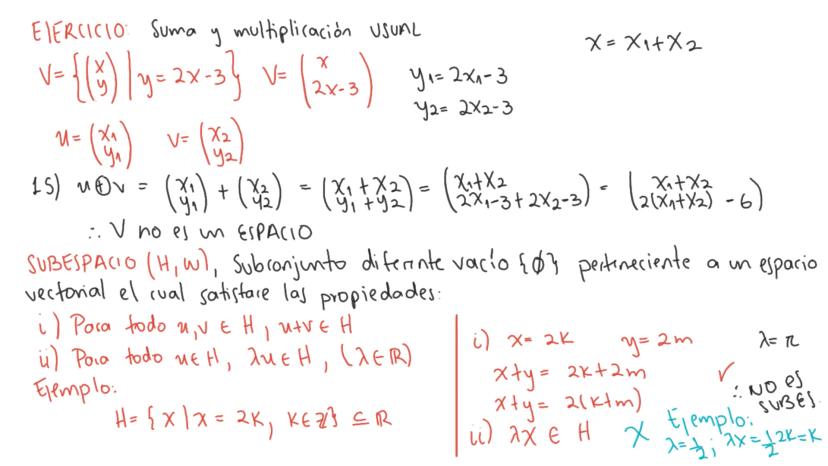 EJERCICIO: Suma y multiplicación USUAL
x = x₁+x₂
V= {(x y) | y = 2x-3} V= (x 2x-3)
y₁= 2x₁-3
y₂= 2x₂-3
u= (x₁ y₁) v= (x₂ y₂)
1S) u⊕v = (x₁ y₁) + (x₂ y₂) = (x₁+x₂ y₁+y₂) = (x₁+x₂ 2x₁-3+2x₂-3) = (x₁+x₂ 2(x₁+x₂) - 6)
∴ V no es un ESPACIO
SUBESPACIO (H,W), Subconjunto difernte vacío {∅} perteneciente a un espacio
vectorial el cual satisface las propiedades:
i) Para todo u,v ∈ H, u+v ∈ H
ii) Para todo u∈H, λu∈H, (λ∈ℝ)
Ejemplo:
H= {x | x = 2k, k∈ℤ} ⊆ ℝ
i) x= 2k y= 2m λ=π
x+y = 2k+2m
x+y = 2(k+m) ✓
∴ NO es
SUBES.
ii) λx ∈ H X Ejemplo:
λ=1/2; λx=1/2 2k=k